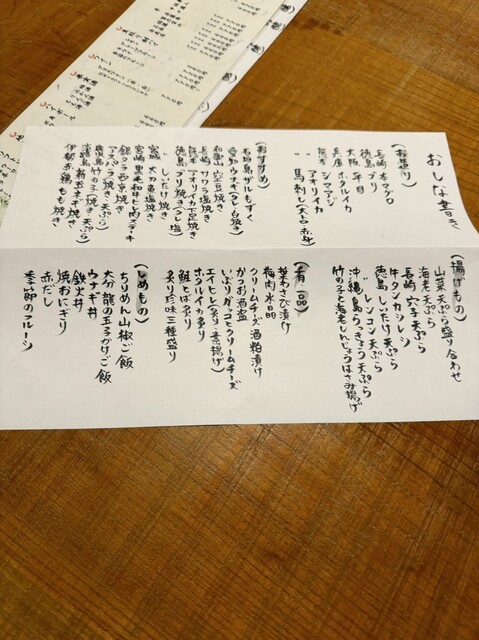 おしながき
(お造り)
長崎 本マグロ
徳島 ブリ
大阪 平目
兵庫 ホタルイカ
長崎 シマアジ
〃 アオリイカ
熊本 馬刺し(大トロ・赤身)
(おすすめ)
石垣島 ザルもずく
愛知 ウナギ(タレ・白焼き)
和歌山 六豆焼き
長崎 サワラ塩焼き
熊本 アオリイカ下足焼き
徳島 ブリ焼き(タレ・塩)
〃 しいたけ焼き
宮城 大カマ魚塩焼き
宮崎 黒毛和牛ヒレ肉ステーキ
銀ダラ西京焼き
アスパラ(焼き・天ぷら)
鹿児島 竹の子(焼き・天ぷら)
淡路島 新玉ネギ焼き
伊勢赤鶏 もも焼き
(揚げもの)
山菜天ぷら盛り合わせ
海老天ぷら
長崎 穴子天ぷら
牛タンカツレツ
徳島 しいたけ天ぷら
〃 レンコン天ぷら
沖縄 島らっきょう天ぷら
竹の子と海老しんじょうはさみ揚げ
(一品)
葉わさび漬け
梅肉水晶
クリームチーズ酒粕漬け
かつお酒盗
いぶりがっことクリームチーズ
エイヒレ(炙り・素揚げ)
ホタルイカ炙り
鮭とば炙り
炙り珍味三種盛り
(しめもの)
ちりめん山椒ご飯
大分 龍の玉子かけご飯
ウナギ丼
鉄火丼
焼おにぎり
赤だし
季節のフルーツ